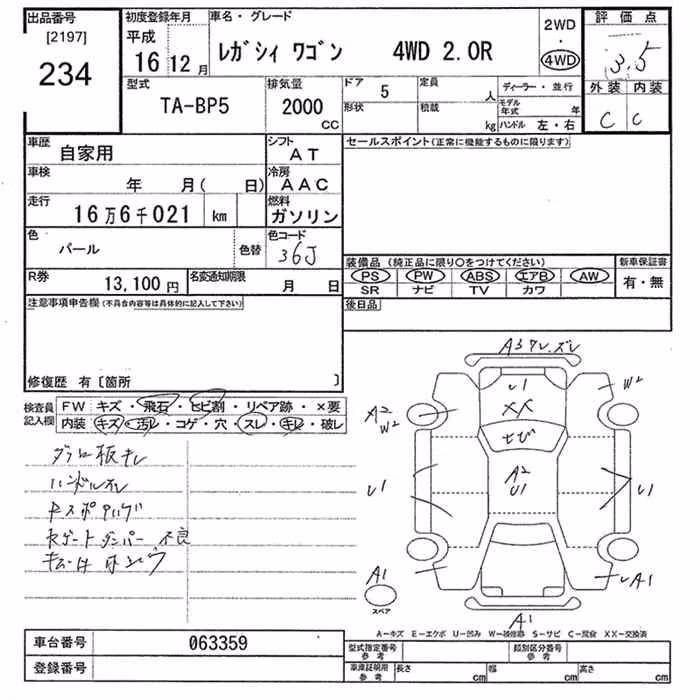 出品番号
[2197]
234
初度登録年月
平成
16 12 月
車名・グレード
レガシィ ワゴン 4WD 2.0R
2WD
・
4WD
評価点
3.5
外装 内装
C C
型式
TA-BP5
排気量
2000
CC
ドア
5
形状
定員
人
積載
kg
ディーラー・並行
モデル年式 年
ハンドル 左・右
車歴
自家用
シフト
AT
車検
年 月( 日)
冷房
AAC
走行
16万6千021 km
燃料
ガソリン
色
パール
色替
色コード
36J
R券
13,100 円
名変通知期限
月 日
セールスポイント(正常に機能するものに限ります)
装備品 (純正品に限り○をつけてください)
PS PW ABS エアB AW
SR ナビ TV カワ
新車保証書
有・無
後日品
注意事項申告欄(不具合内容等は具体的に記入して下さい)
修復歴 有〔箇所 〕
検査員
記入欄
FW キズ・飛石・ヒビ割・リペア跡・×要
内装 キズ・汚レ・コゲ・穴・スレ・キレ・破レ
ハンドルスレ
不良
A3
U1
XX
ヒビ
A2
U1
W2
A2
W2
U1
U1
A1
A1
A1
スペア
A-キズ E-エクボ U-凹み W-補修跡 S-サビ C-腐食 XX-交換済
車台番号
063359
登録番号
型式指定番号
参考
類別区分番号
参考
車庫証明用
参考
長さ cm
幅 cm
高さ cm